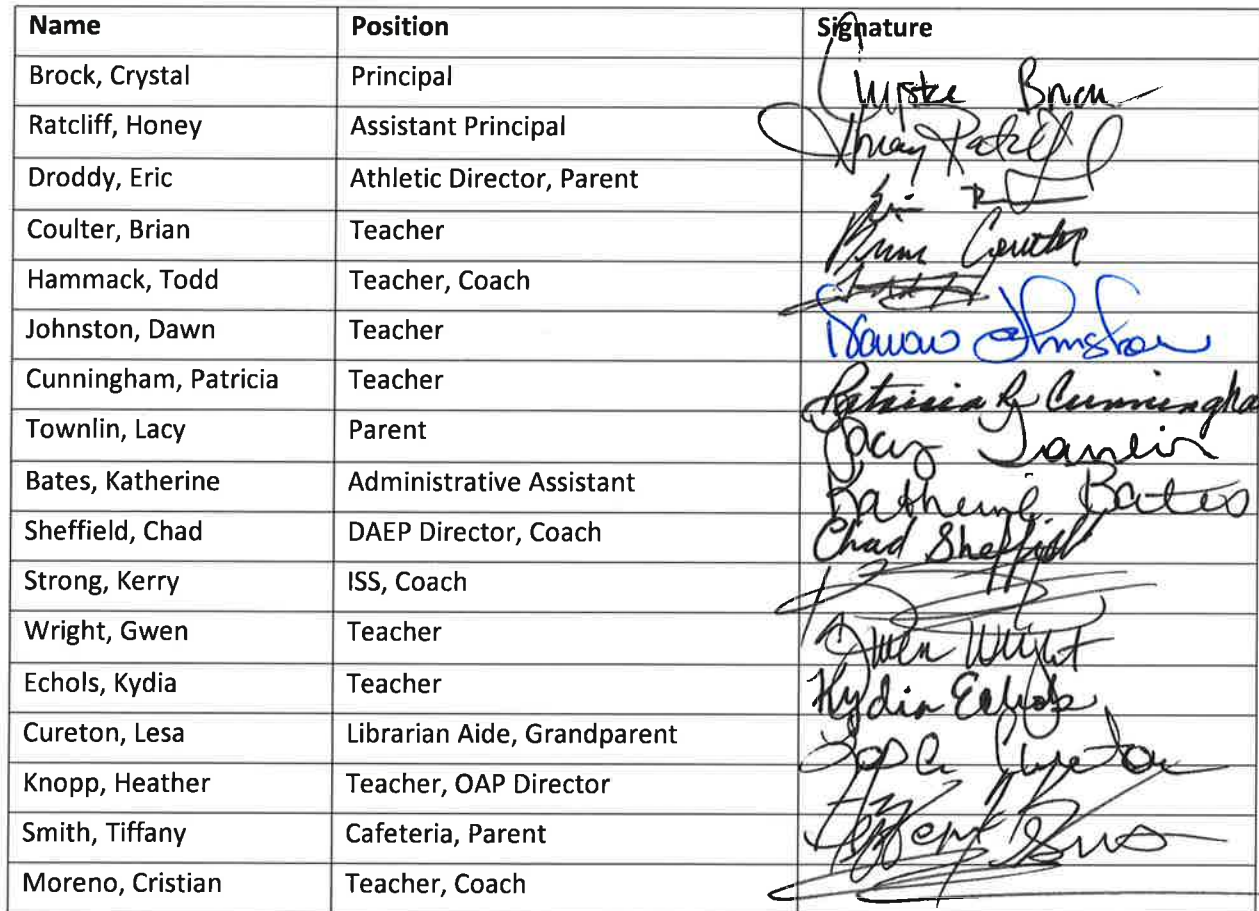 Name Position Signature
Brock, Crystal Principal
Ratcliff, Honey Assistant Principal
Droddy, Eric Athletic Director, Parent
Coulter, Brian Teacher
Hammack, Todd Teacher, Coach
Johnston, Dawn Teacher
Cunningham, Patricia Teacher Patricia Cunningha
Townlin, Lacy Parent Lacy
Bates, Katherine Administrative Assistant Katherine Bates
Sheffield, Chad DAEP Director, Coach Chad Sheffield
Strong, Kerry ISS, Coach
Wright, Gwen Teacher Gwen Wright
Echols, Kydia Teacher Kydia Echols
Cureton, Lesa Librarian Aide, Grandparent
Knopp, Heather Teacher, OAP Director
Smith, Tiffany Cafeteria, Parent
Moreno, Cristian Teacher, Coach